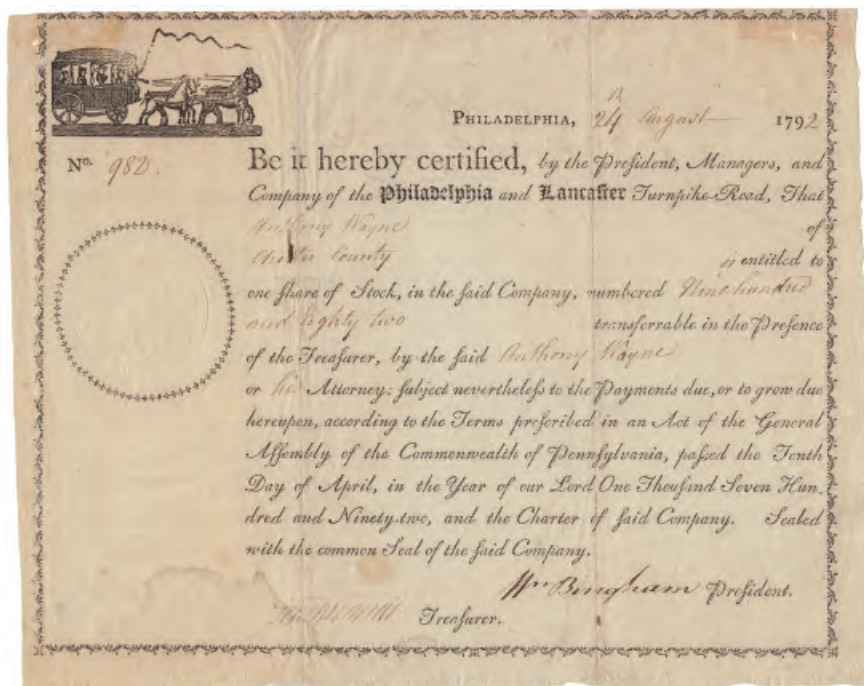 PHILADELPHIA, 24th August 1792
No. 982.
Be it hereby certified, by the Preſident, Managers, and
Company of the Philadelphia and Lancaſter Turnpike-Road, That
Anthony Wayne of
Cheſter County is entitled to
one Share of Stock, in the ſaid Company, numbered Nine hundred
and Eighty two transferrable in the Preſence
of the Treaſurer, by the ſaid Anthony Wayne
or his Attorney: ſubject nevertheleſs to the Payments due, or to grow due
hereupon, according to the Terms preſcribed in an Act of the General
Aſſembly of the Commonwealth of Pennſylvania, paſſed the Tenth
Day of April, in the Year of our Lord One Thouſand Seven Hun-
dred and Ninety-two, and the Charter of ſaid Company. Sealed
with the common Seal of the ſaid Company.
Wm Bingham Preſident.
Treaſurer.